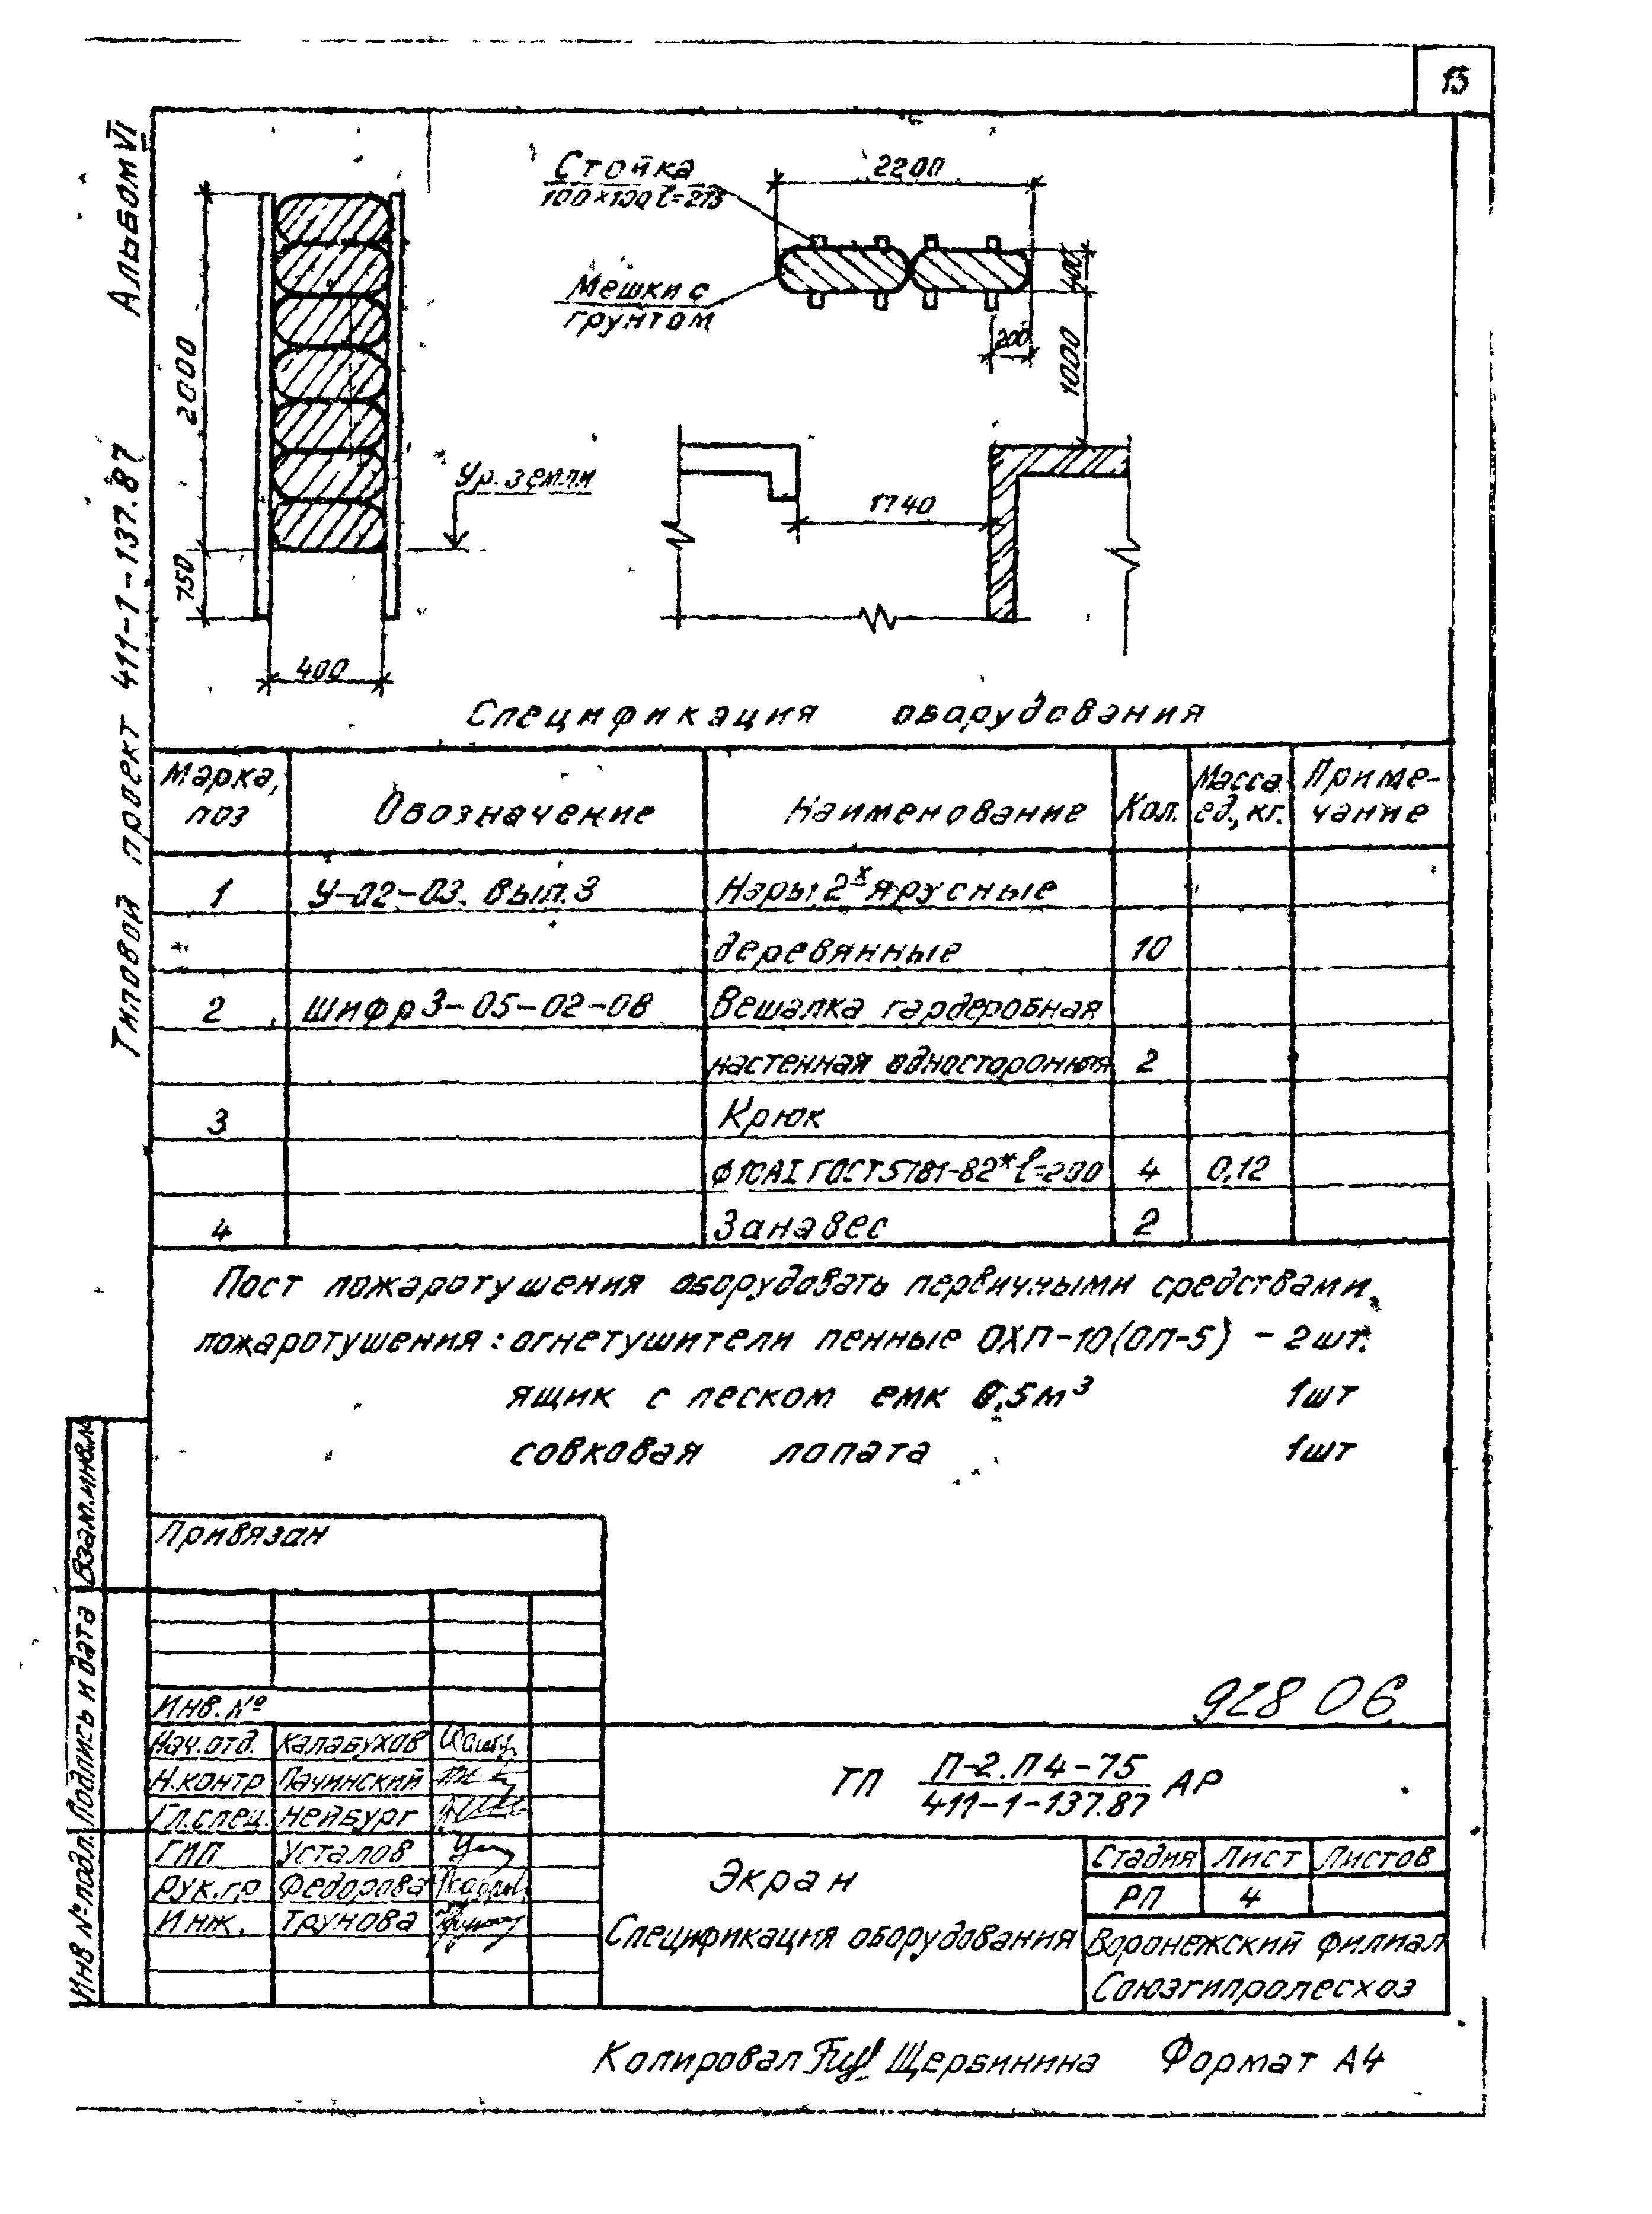 15
Альбом VI
Типовой проект 411-1-137.87
Стойка
100×100 ℓ=275
Мешки с
грунтом
2200
400
200
1000
2000
750
400
Ур. земли
1740
Спецификация оборудования
Марка, поз | Обозначение | Наименование | Кол. | Масса ед., кг. | Приме-чание
1 | У-02-03. вып.3 | Нары 2х ярусные
деревянные | 10
2 | Шифр 3-05-02-08 | Вешалка гардеробная
настенная односторонняя | 2
3 | Крюк
ф10АI ГОСТ 5781-82* ℓ=200 | 4 | 0,12
4 | Занавес | 2
Пост пожаротушения оборудовать первичными средствами
пожаротушения: огнетушители пенные ОХП-10(ОП-5) - 2шт.
ящик с песком емк 0,5м³ 1шт
совковая лопата 1шт
Взам.инв.№
Подпись и дата
Инв № подл.
Привязан
Инв. №
928 06
Нач.отд. Калабухов
Н.контр Пачинский
Гл.спец. Нейбург
ГИП Усталов
Рук.гр Федорова
Инж. Трунова
ТП П-2.П4-75 АР
411-1-137.87
Экран
Спецификация оборудования
Стадия Лист Листов
РП 4
Воронежский филиал
Союзгипролесхоз
Копировал Щербинина Формат А4